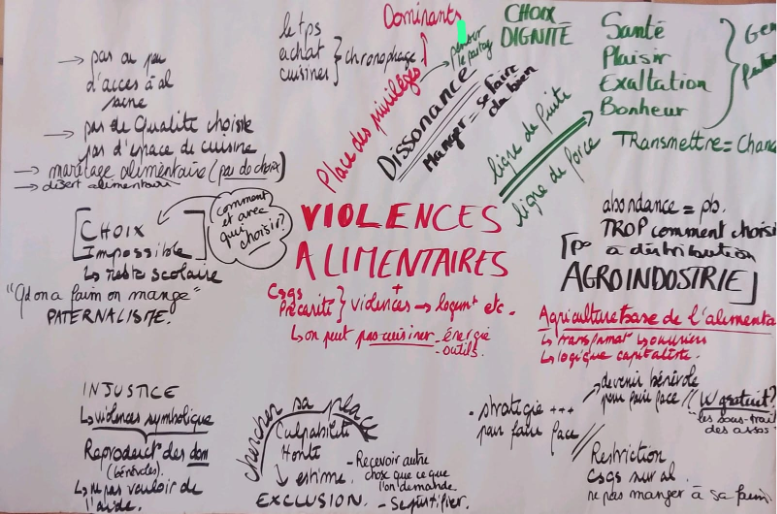 → pas ou peu
d'accès à al
saine
→ pas de Qualité choisie
pas d'espace de cuisine
→ marêtage alimentaire (pas de choix)
→ désert alimentaire
[CHOIX
Impossible
↳ resto scolaire
comment
et avec
qui
choisir?
"Qd on a faim on mange"
PATERNALISME.
le tps
achat
cuisines } chronophage
Dominants
Place des privilégiés
→ penser
le partage
Dissonance
Manger = se faire
du bien
CHOIX
DIGNITÉ
ligne de fuite
ligne de force
Santé
Plaisir
Exaltation
Bonheur
TRansmettre =
VIOLENCES
ALIMENTAIRES
+
Csqs
Précarité } violences → logemt etc.
↳ on peut pas cuisiner - énergie
- outils.
abondance = pb.
TROP comment choisi
[ps à distribution
AGROINDOSTRIE]
Agriculture base de l'alimenta
↳ transformat° ↳ ouvriers
↳ logique capitaliste.
INJUSTICE
↳ violences symbolique
Reproduct° des dom
(bénévoles).
↳ ne pas vouloir de
l'aide.
chercher sa place
Culpabilité
Honte
↓ estime
EXCLUSION.
- Recevoir autre
chose que ce que
l'on demande.
- Se justifier.
• stratégie +++
pour faire face
↳ devenir bénévole
pour faire face // W gratuit?
les sous-trait
des assos
Restriction
Csqs sur al.
ne pas manger à sa faim